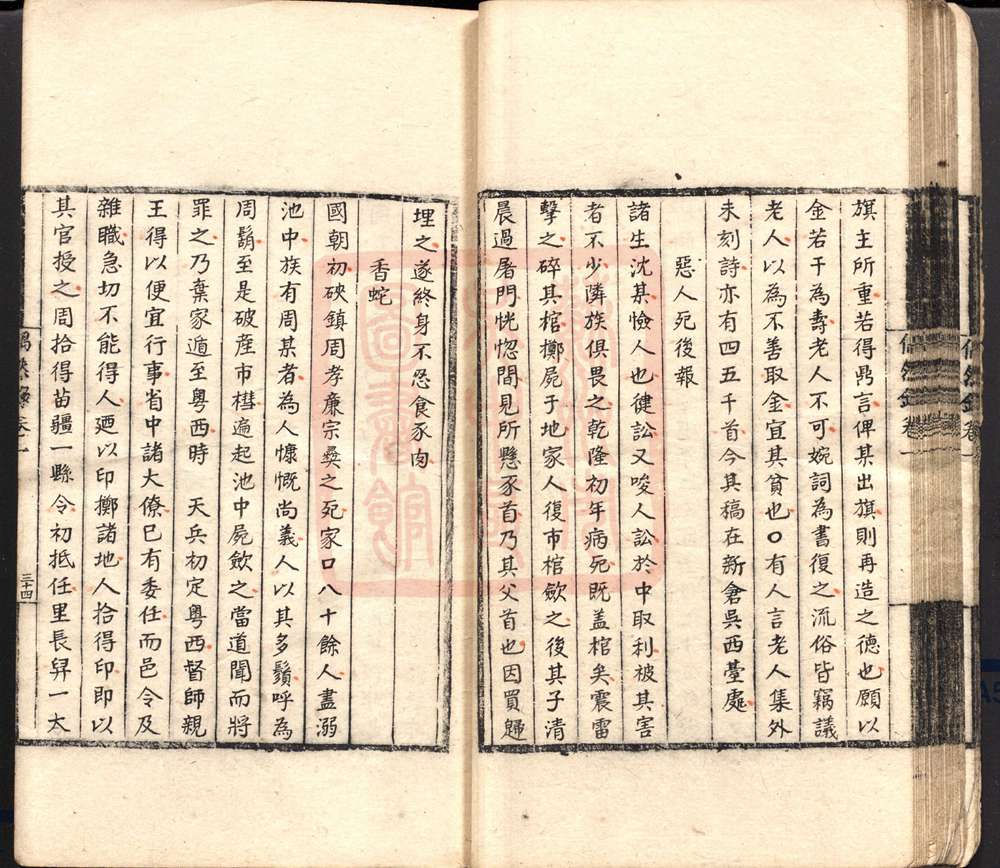 旗主所重若得鼎言俾其出旗則再造之德也願以
金若干為壽老人不可婉詞為書復之流俗皆竊議
老人以為不善取金宜其貧也〇有人言老人集外
未刻詩亦有四五千首今其稿在新倉吳西臺處
惡人死後報
諸生沈某憸人也健訟又唆人訟於中取利被其害
者不少隣族俱畏之乾隆初年病死既盖棺矣震雷
擊之碎其棺擲屍于地家人復市棺斂之後其子清
晨過屠門恍惚間見所懸豕首乃其父首也因買歸
埋之遂終身不忍食豕肉
香蛇
國朝初硤鎮周孝廉宗彝之死家口八十餘人盡溺
池中族有周某者為人慷慨尚義人以其多鬚呼為
周鬍至是破産市槥遍起池中屍斂之當道聞而將
罪之乃棄家遁至粤西時　天兵初定粤西督師親
王得以便宜行事省中諸大僚已有委任而邑令及
雜職急切不能得人廼以印擲諸地人拾得印即以
其官授之周拾得苗疆一縣令初抵任里長舁一太
偶然錄卷一
三十四